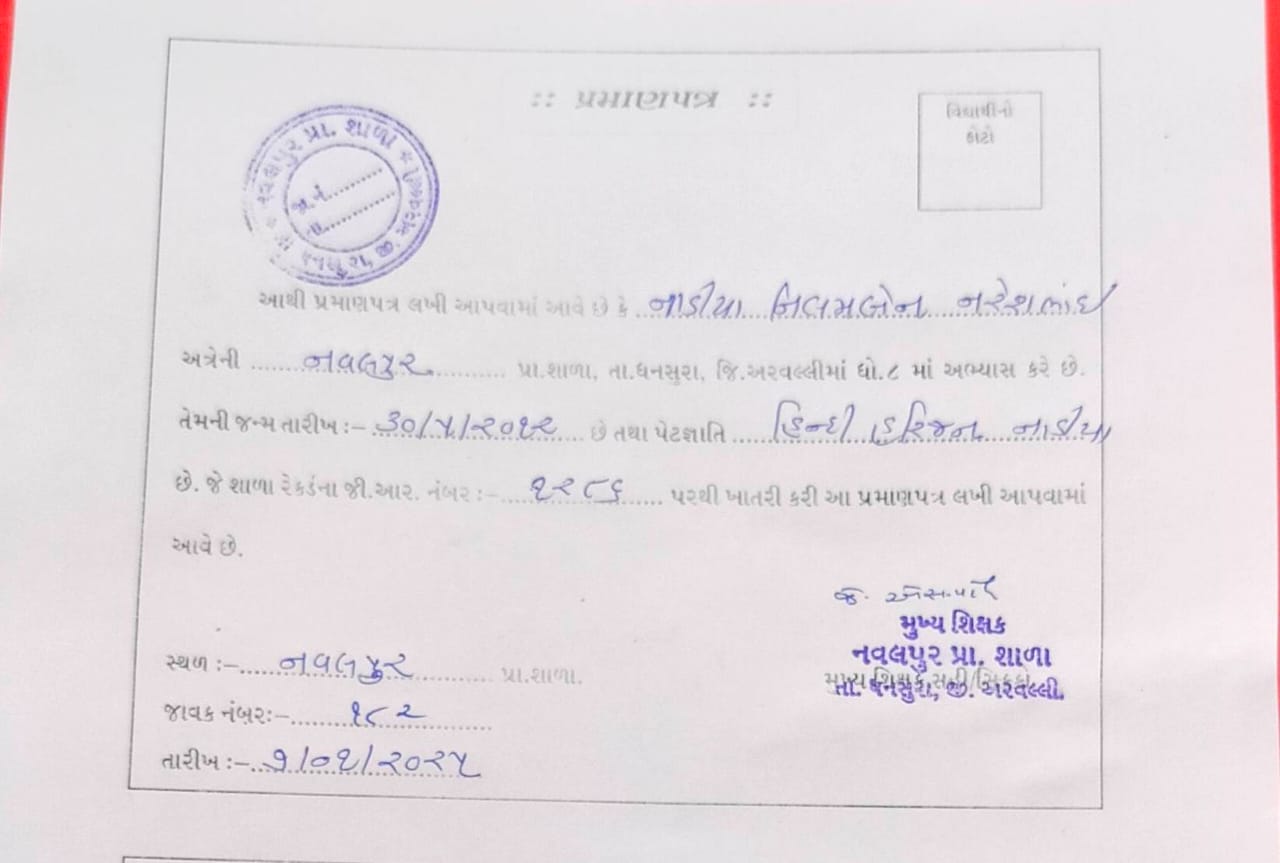 :: પ્રમાણપત્ર ::
વિદ્યાર્થીનો
ફોટો
* નવલપુર પ્રા. શાળા *
જા.નં..........
તા..........
ધનસુરા, જી.
આથી પ્રમાણપત્ર લખી આપવામાં આવે છે કે નાડીયા નિલમબેન નરેશભાઈ
અત્રેની ........નવલપુર............ પ્રા.શાળા, તા.ધનસુરા, જિ.અરવલ્લીમાં ધો.૮ માં અભ્યાસ કરે છે.
તેમની જન્મ તારીખ :- ૩૦/૫/૨૦૧૨ છે તથા પેટાજ્ઞાતિ હિન્દી હરિજન નાડીયા
છે. જે શાળા રેકર્ડના જી.આર. નંબર :- ૧૨૮૬ પરથી ખાતરી કરી આ પ્રમાણપત્ર લખી આપવામાં
આવે છે.
મુખ્ય શિક્ષક
નવલપુર પ્રા. શાળા
મુખ્ય શિક્ષક સહી/સિક્કા
તા. ધનસુરા, જી. અરવલ્લી.
સ્થળ :- નવલપુર પ્રા.શાળા.
જાવક નંબર:- ૧૮૨
તારીખ :- ૧/૦૧/૨૦૨૫